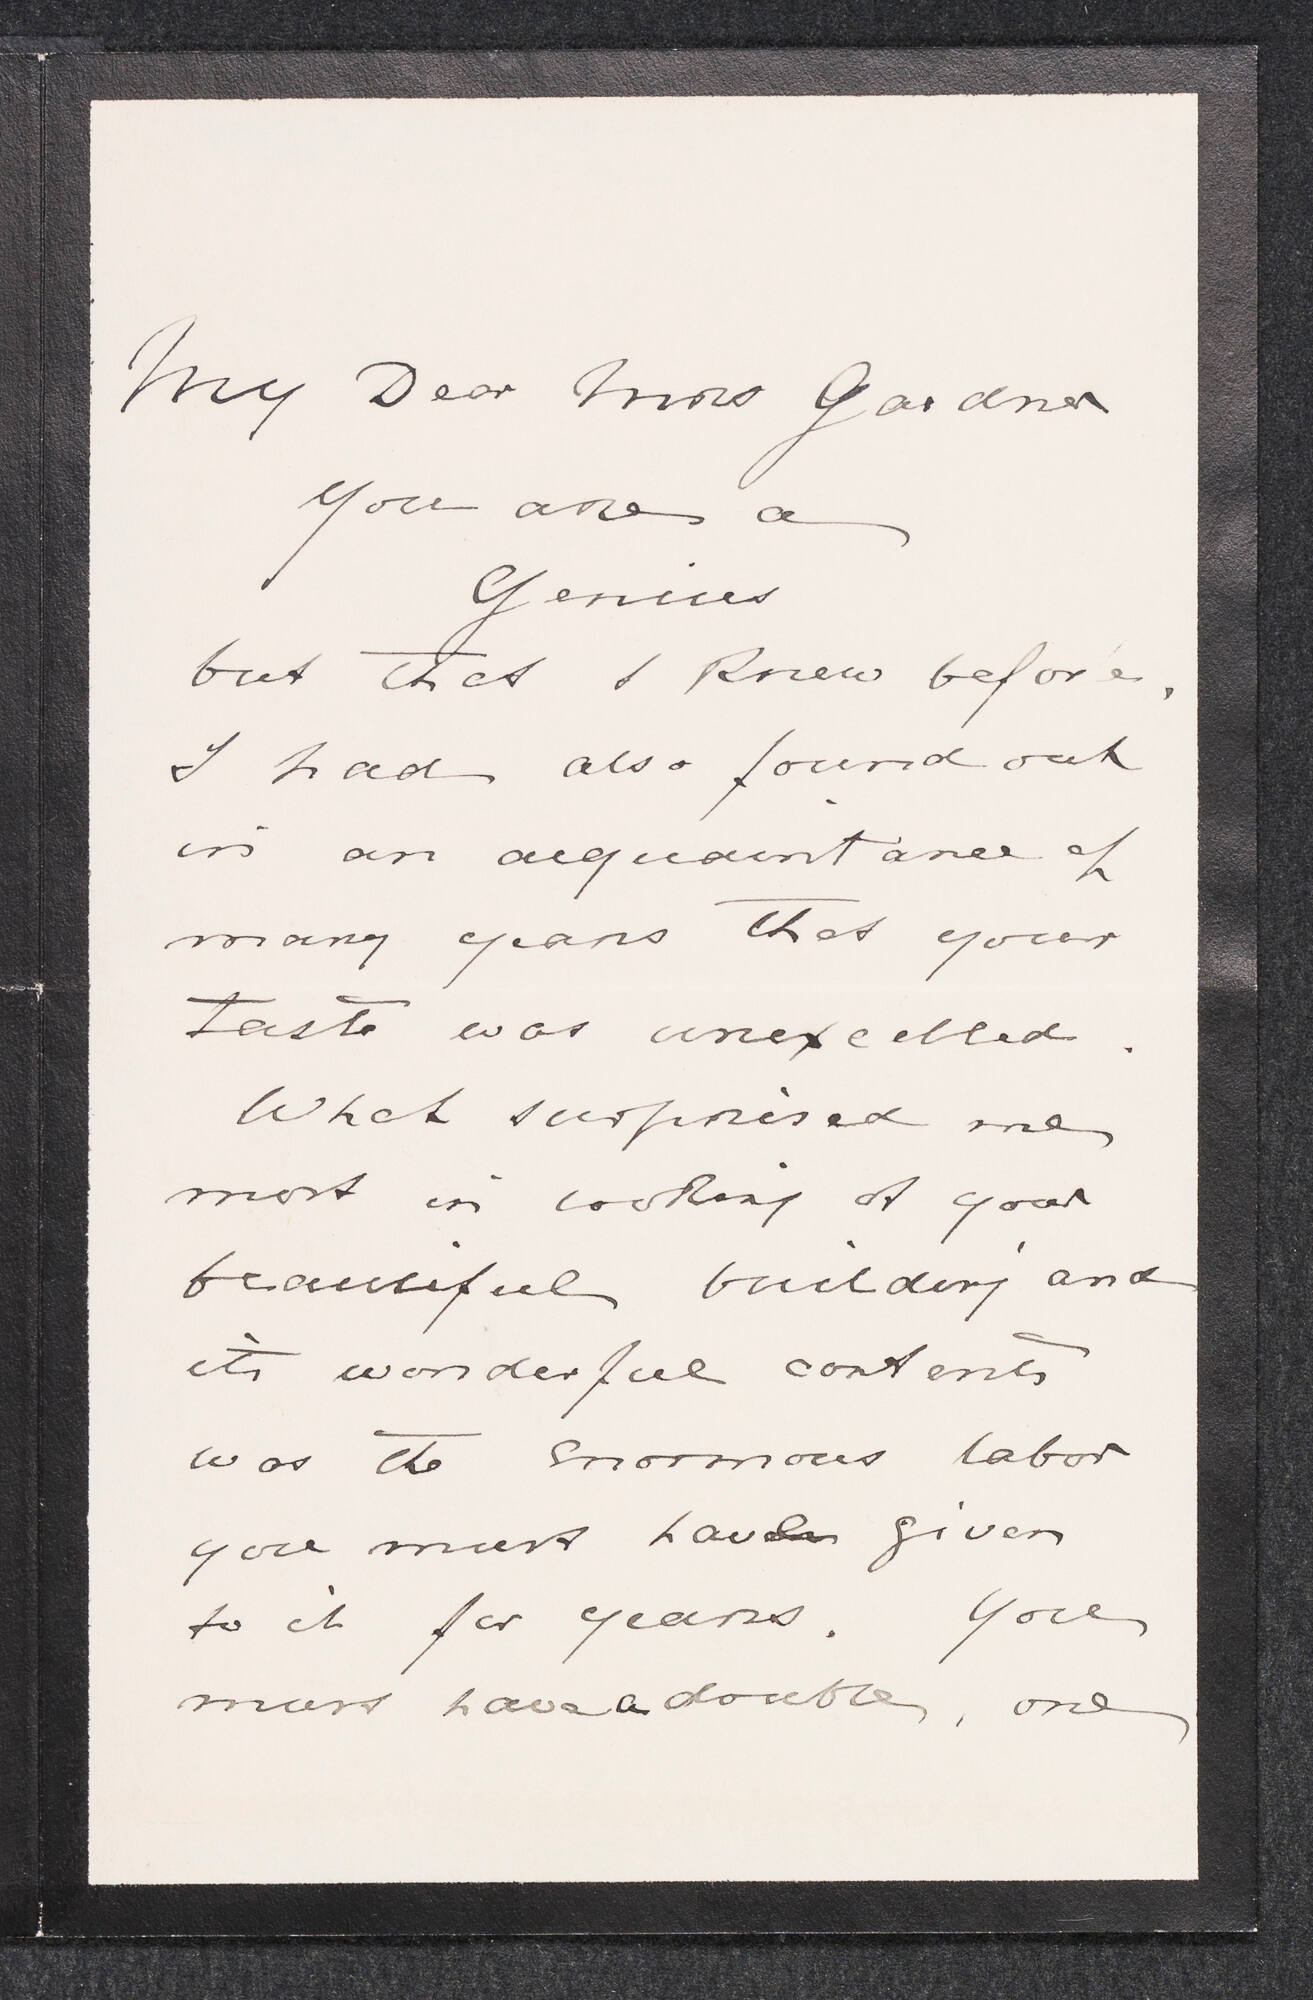 My Dear Mrs Gardner
You are a
Genius
but that I knew before.
I had also found out
in an acquaintance of
many years that your
taste was unexcelled.
What surprised me
most in looking at your
beautiful building and
its wonderful contents
was the enormous labor
you must have given
to it for years. You
must have a double, one